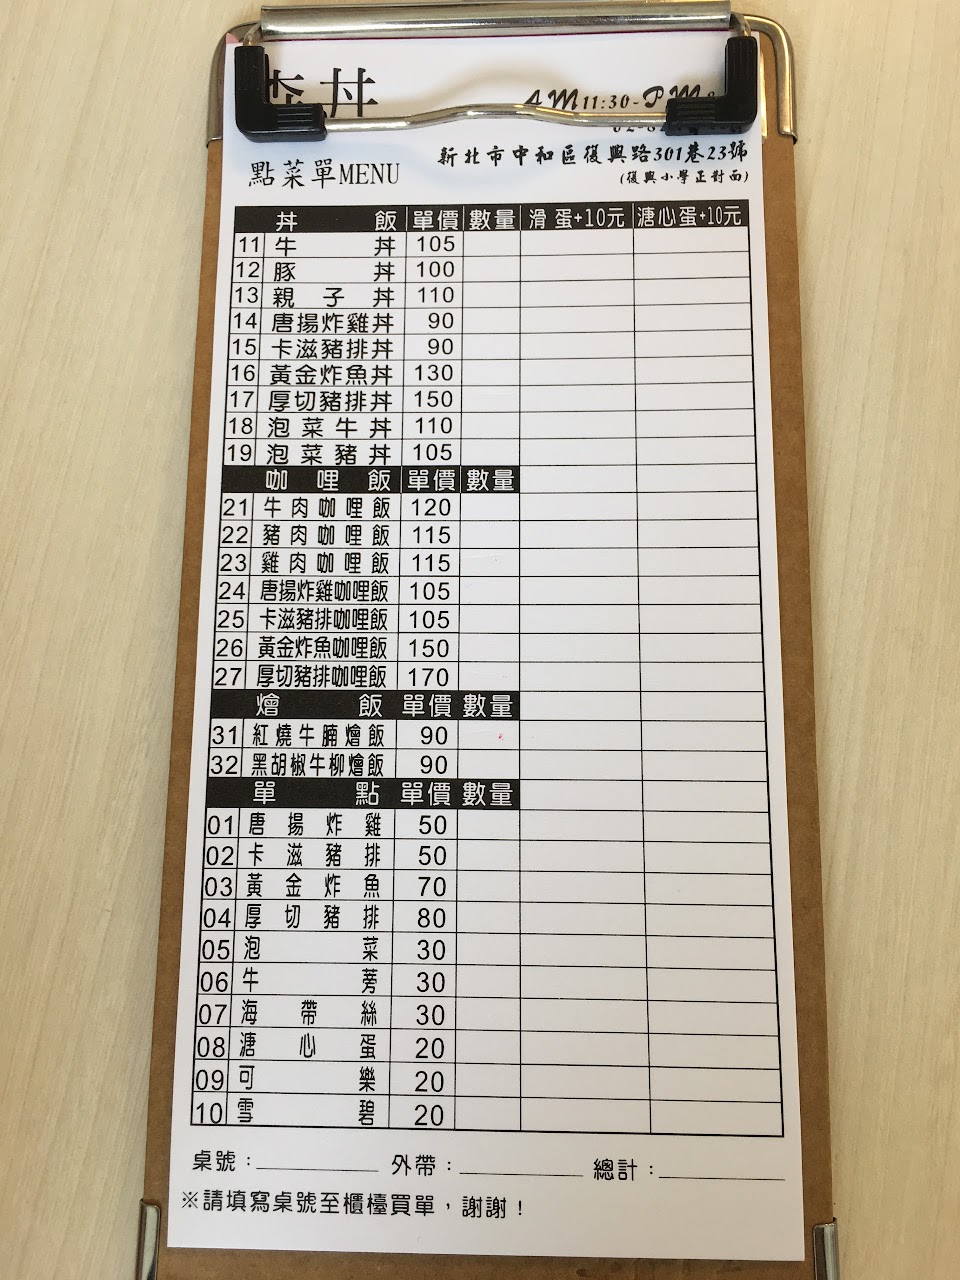 森丼
AM11:30-PM8
02-82
新北市中和區復興路301巷23號
(復興小學正對面)
點菜單MENU
丼飯 單價 數量 滑蛋+10元 溏心蛋+10元
11 牛丼 105
12 豚丼 100
13 親子丼 110
14 唐揚炸雞丼 90
15 卡滋豬排丼 90
16 黃金炸魚丼 130
17 厚切豬排丼 150
18 泡菜牛丼 110
19 泡菜豬丼 105
咖哩飯 單價 數量
21 牛肉咖哩飯 120
22 豬肉咖哩飯 115
23 雞肉咖哩飯 115
24 唐揚炸雞咖哩飯 105
25 卡滋豬排咖哩飯 105
26 黃金炸魚咖哩飯 150
27 厚切豬排咖哩飯 170
燴飯 單價 數量
31 紅燒牛腩燴飯 90
32 黑胡椒牛柳燴飯 90
單點 單價 數量
01 唐揚炸雞 50
02 卡滋豬排 50
03 黃金炸魚 70
04 厚切豬排 80
05 泡菜 30
06 牛蒡 30
07 海帶絲 30
08 溏心蛋 20
09 可樂 20
10 雪碧 20
桌號：
外帶：
總計：
※請填寫桌號至櫃檯買單，謝謝！